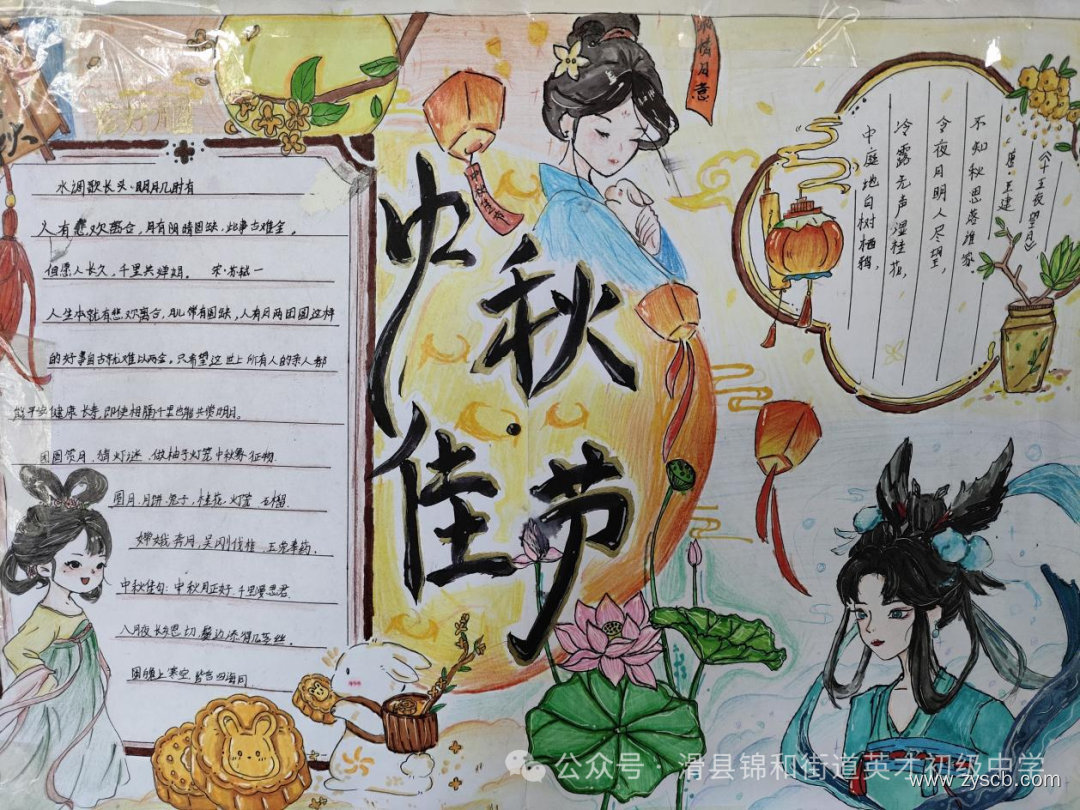 水调歌长头·明月几时有
人有悲欢离合，月有阴晴圆缺，此事古难全。
但愿人长久，千里共婵娟。 宋·苏轼
人生本就有悲欢离合，月儿常有圆缺，人有月两团圆这样
的好事自古就难以两全。只希望这世上所有人的亲人都
能平安健康长寿，即使相隔千里也能共赏明月。
团圆赏月、猜灯谜、做柚子灯笼中秋象征物
圆月、月饼、兔子、桂花、灯笼、玉榴
嫦娥奔月、吴刚伐桂、玉兔捣药
中秋佳句：中秋月正好，千里
八月夜长思切
圆魄上寒空，皆言四海同
中秋
佳节
情月意
中秋佳节
《十五夜望月》
唐·王建
不知秋思落谁家
今夜月明人尽望，
冷露无声湿桂花，
中庭地白树栖鸦，
公众号 · 滑县锦和街道英才初级中学
www.zyscb.com